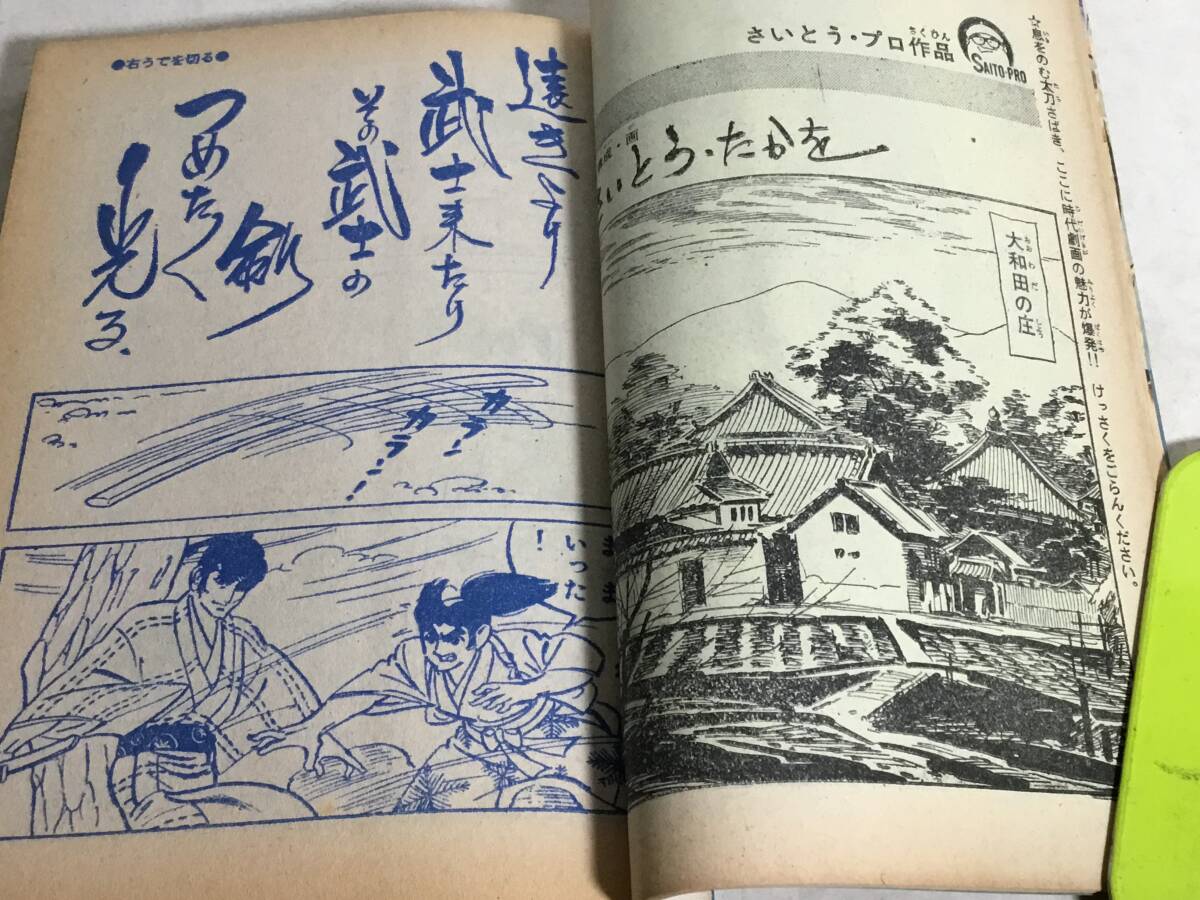 ☆息をのむ太刀さばき、ここに時代劇画の魅力が爆発!! けっさくをごらんください。
さいとう・プロ作品
SAITO-PRO
・画
いとう・たかを
大和田の庄
●右うでを切る●
遠きより
武士来たり
その武士の
剣
つめたく
光る、
カラーン
カラーン
ま
いった
!